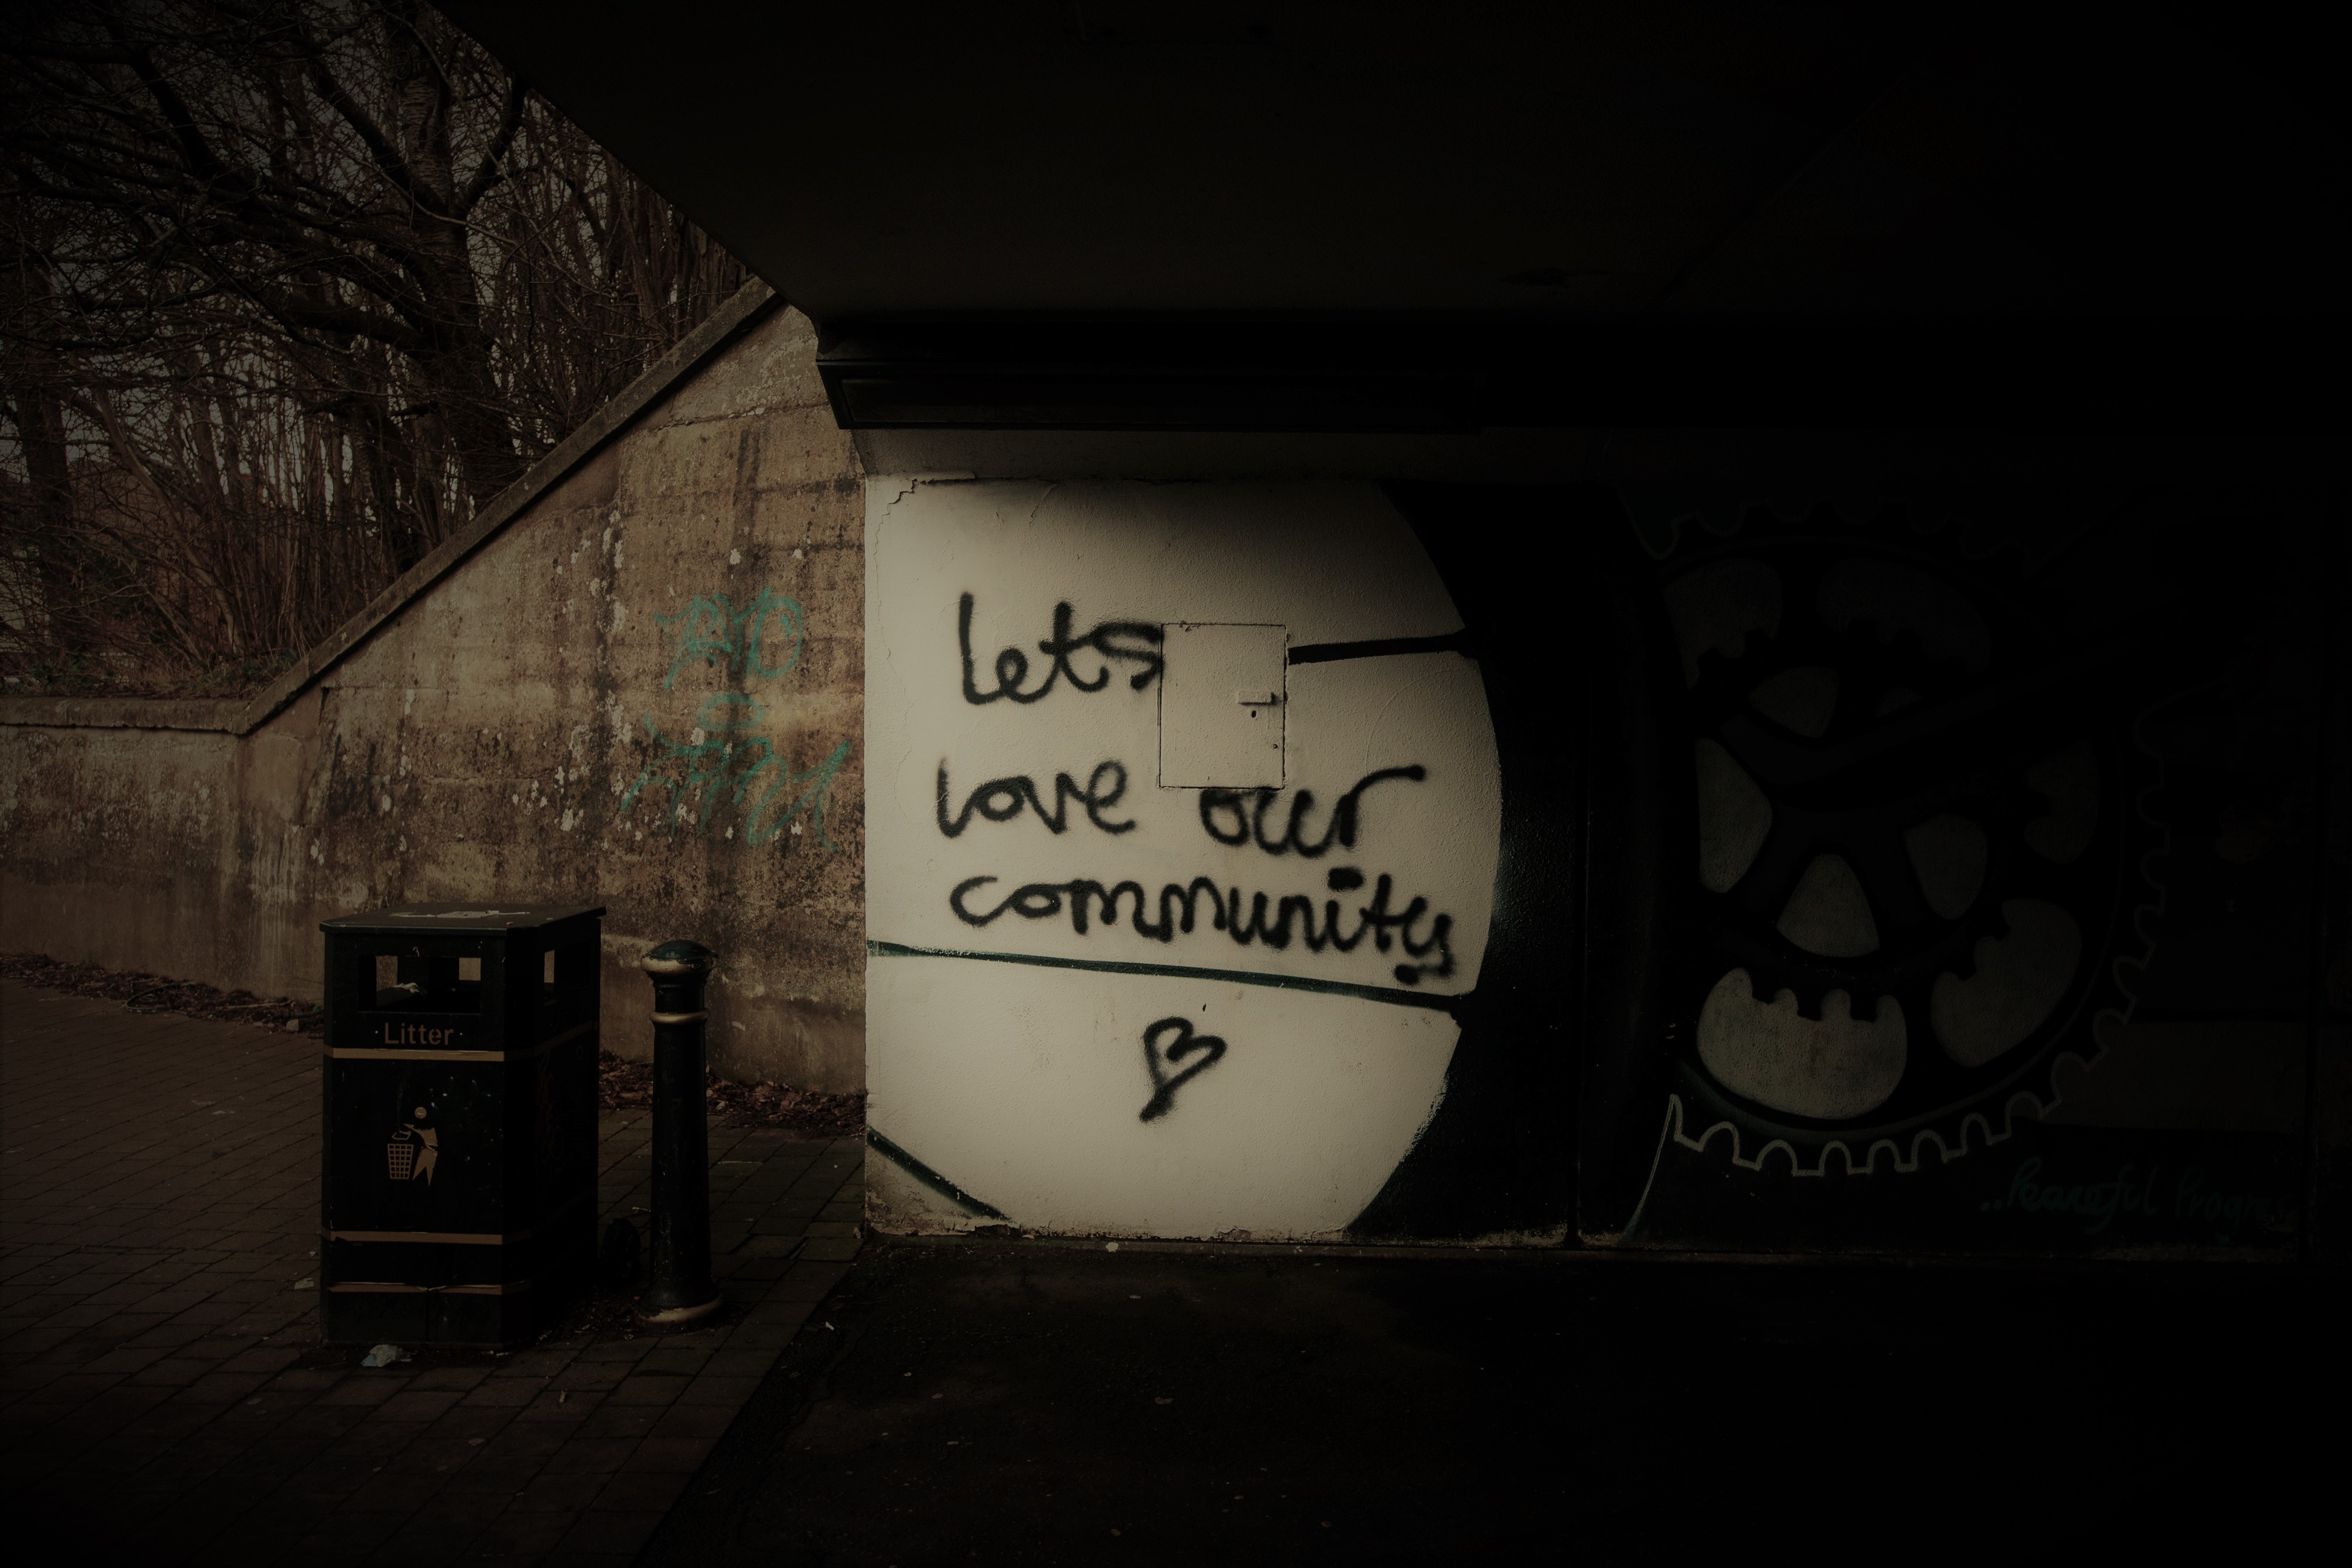 Lets
love our
community
Litter
..Peaceful Progress